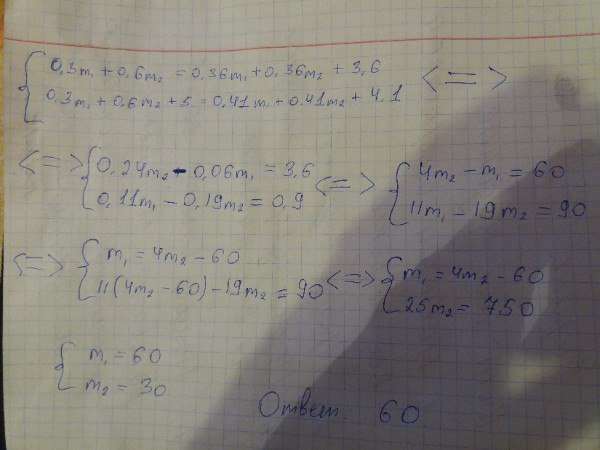 0,3m₁ + 0,6m₂ = 0,36m₁ + 0,36m₂ + 3,6
0,3m₁ + 0,6m₂ + 5 = 0,41m₁ + 0,41m₂ + 4,1 <=>
<=> 0,24m₂ - 0,06m₁ = 3,6
0,11m₁ - 0,19m₂ = 0,9
<=> 4m₂ - m₁ = 60
11m₁ - 19m₂ = 90
<=> m₁ = 4m₂ - 60
11(4m₂ - 60) - 19m₂ = 90
<=> m₁ = 4m₂ - 60
25m₂ = 750
m₁ = 60
m₂ = 30
Ответ. 60